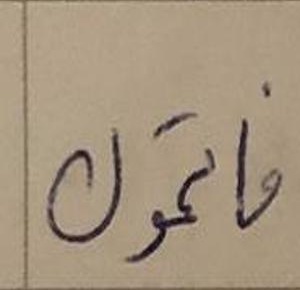 فاتحول